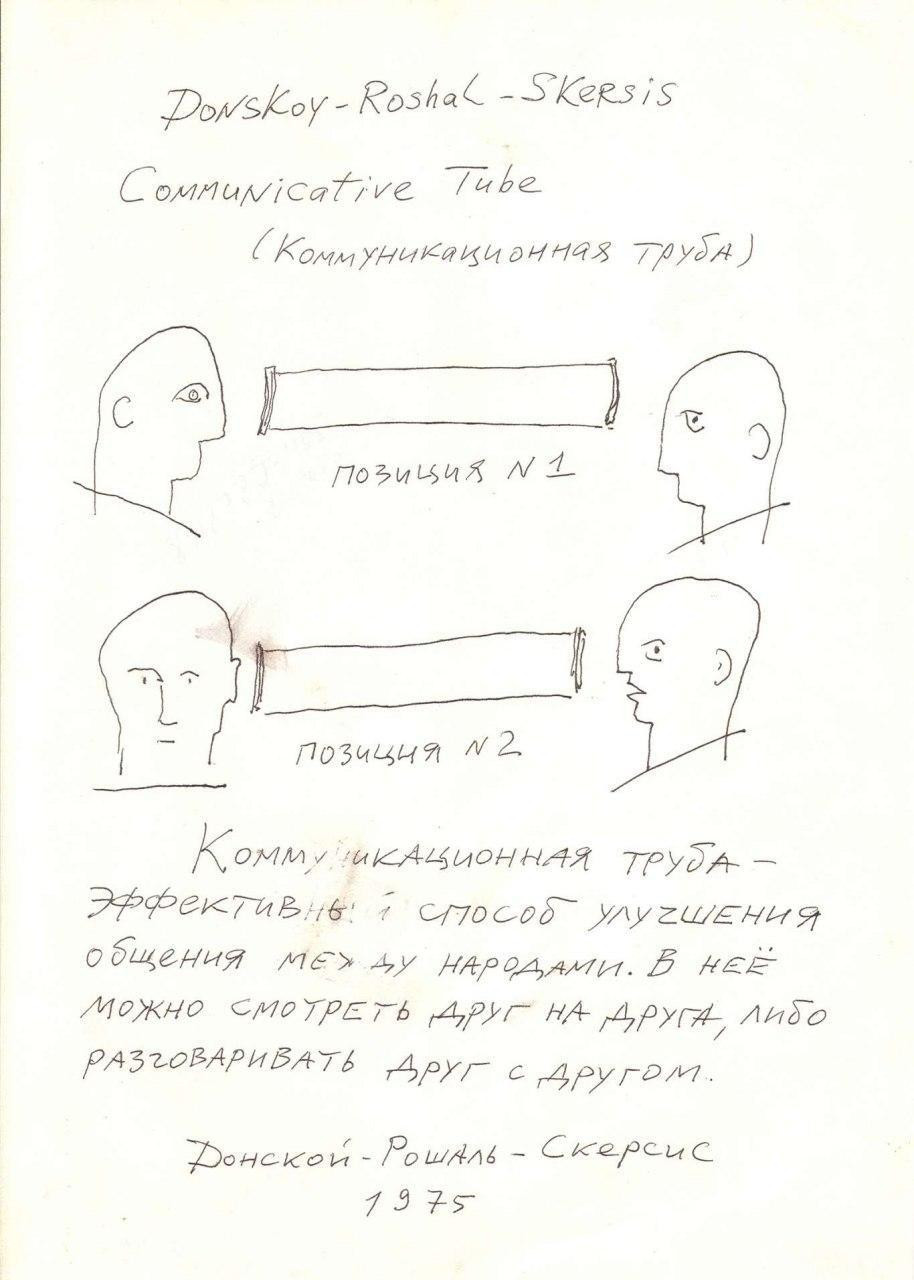 Donskoy-Roshal-Skersis
Communicative Tube
(Коммуникационная труба)
позиция N 1
позиция N 2
Коммуникационная труба –
эффективный способ улучшения
общения между народами. В неё
можно смотреть друг на друга, либо
разговаривать друг с другом.
Донской-Рошаль-Скерсис
1975